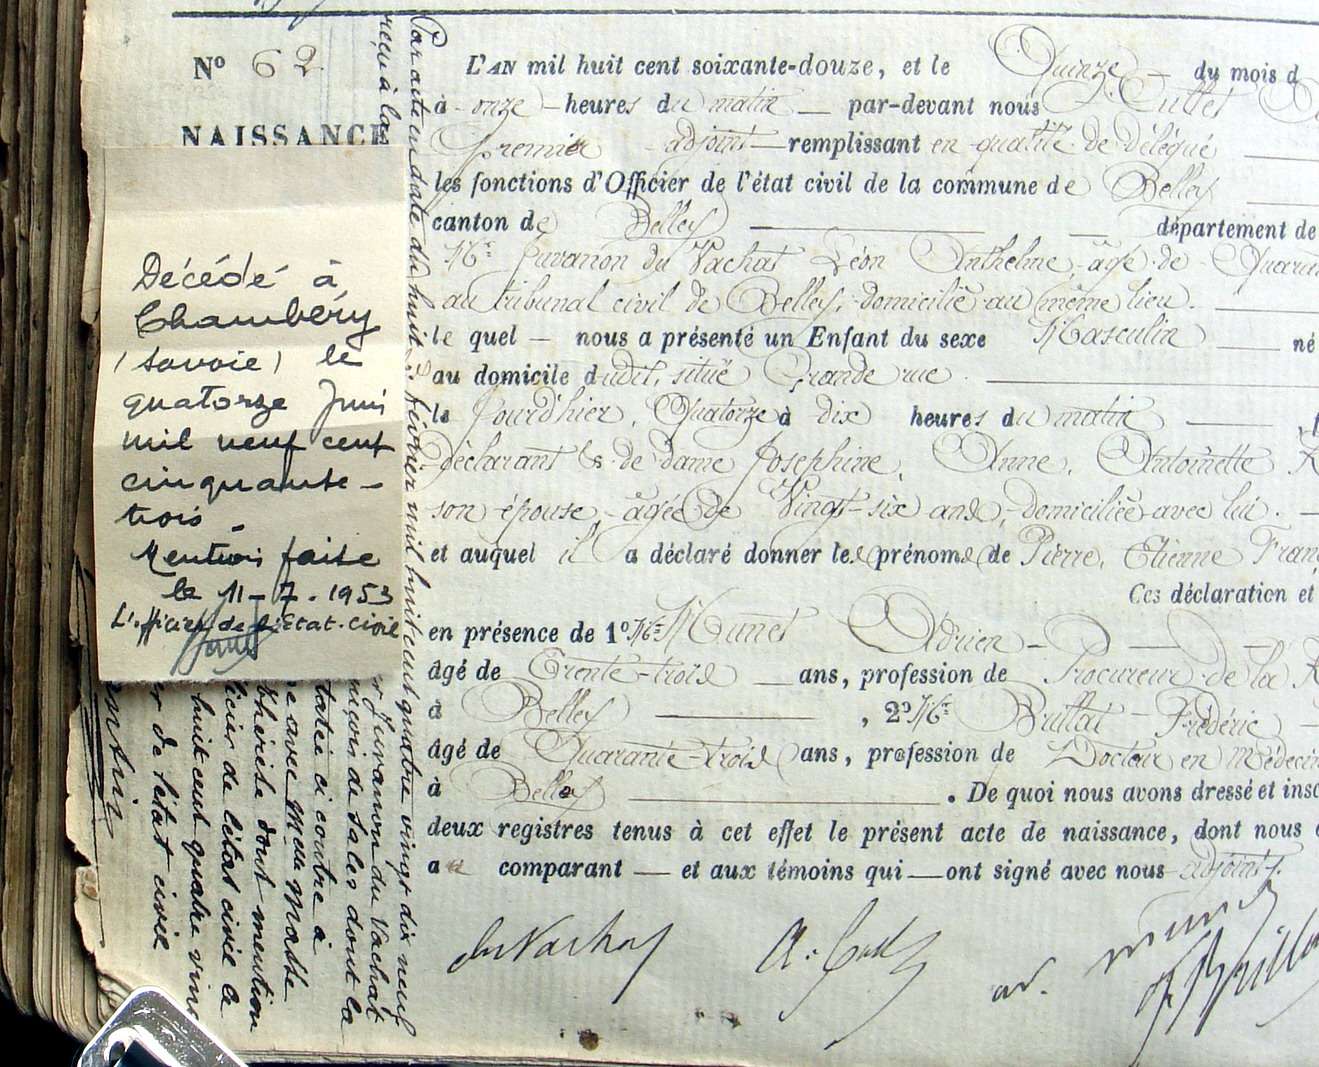 N° 62
NAISSANCE
L'AN mil huit cent soixante-douze, et le Quinze du mois d
à onze heures du matin par-devant nous
Premier adjoint remplissant en qualité de délégué
les fonctions d'Officier de l'état civil de la commune de Belley
canton de Belley département de
Mr Juvanon du Vachat Léon Anthelme, âgé de Quaran
au tribunal civil de Belley, domicilié au même lieu.
le quel nous a présenté un Enfant du sexe Masculin né
au domicile dudit, situé Grande rue
le jourd'hier, Quatorze à dix heures du matin
déclarant & de dame Josephine, Anne, Antoinette
son épouse âgée de Vingt-six ans, domiciliée avec lui.
et auquel il a déclaré donner les prénoms de Pierre, Etienne Fran
Ces déclaration et
en présence de 1° Mr Munet Adrien
âgé de Trente-trois ans, profession de Procureur de la R
à Belley , 2° Mr Brillat Frédéric
âgé de Quarante-trois ans, profession de Docteur en Médecin
à Belley . De quoi nous avons dressé et insc
deux registres tenus à cet effet le présent acte de naissance, dont nous
au comparant et aux témoins qui ont signé avec nous adjoint.
du Vachat
Décédé à
Chambéry
(Savoie) le
quatorze Juin
mil neuf cent
cinquante-
trois.
Mention faite
le 11-7-1953
L'officier de l'Etat-civil
Par acte en date du huit février mil huit cent quatre vingt dix neuf
reçu à la
r Juvanon du Vachat
de Sales dont la
tatée ci contre à
e avec Melle Masse
Thérèse dont mention
icier de l'état civil le
huit cent quatre vin
r de l'état civil